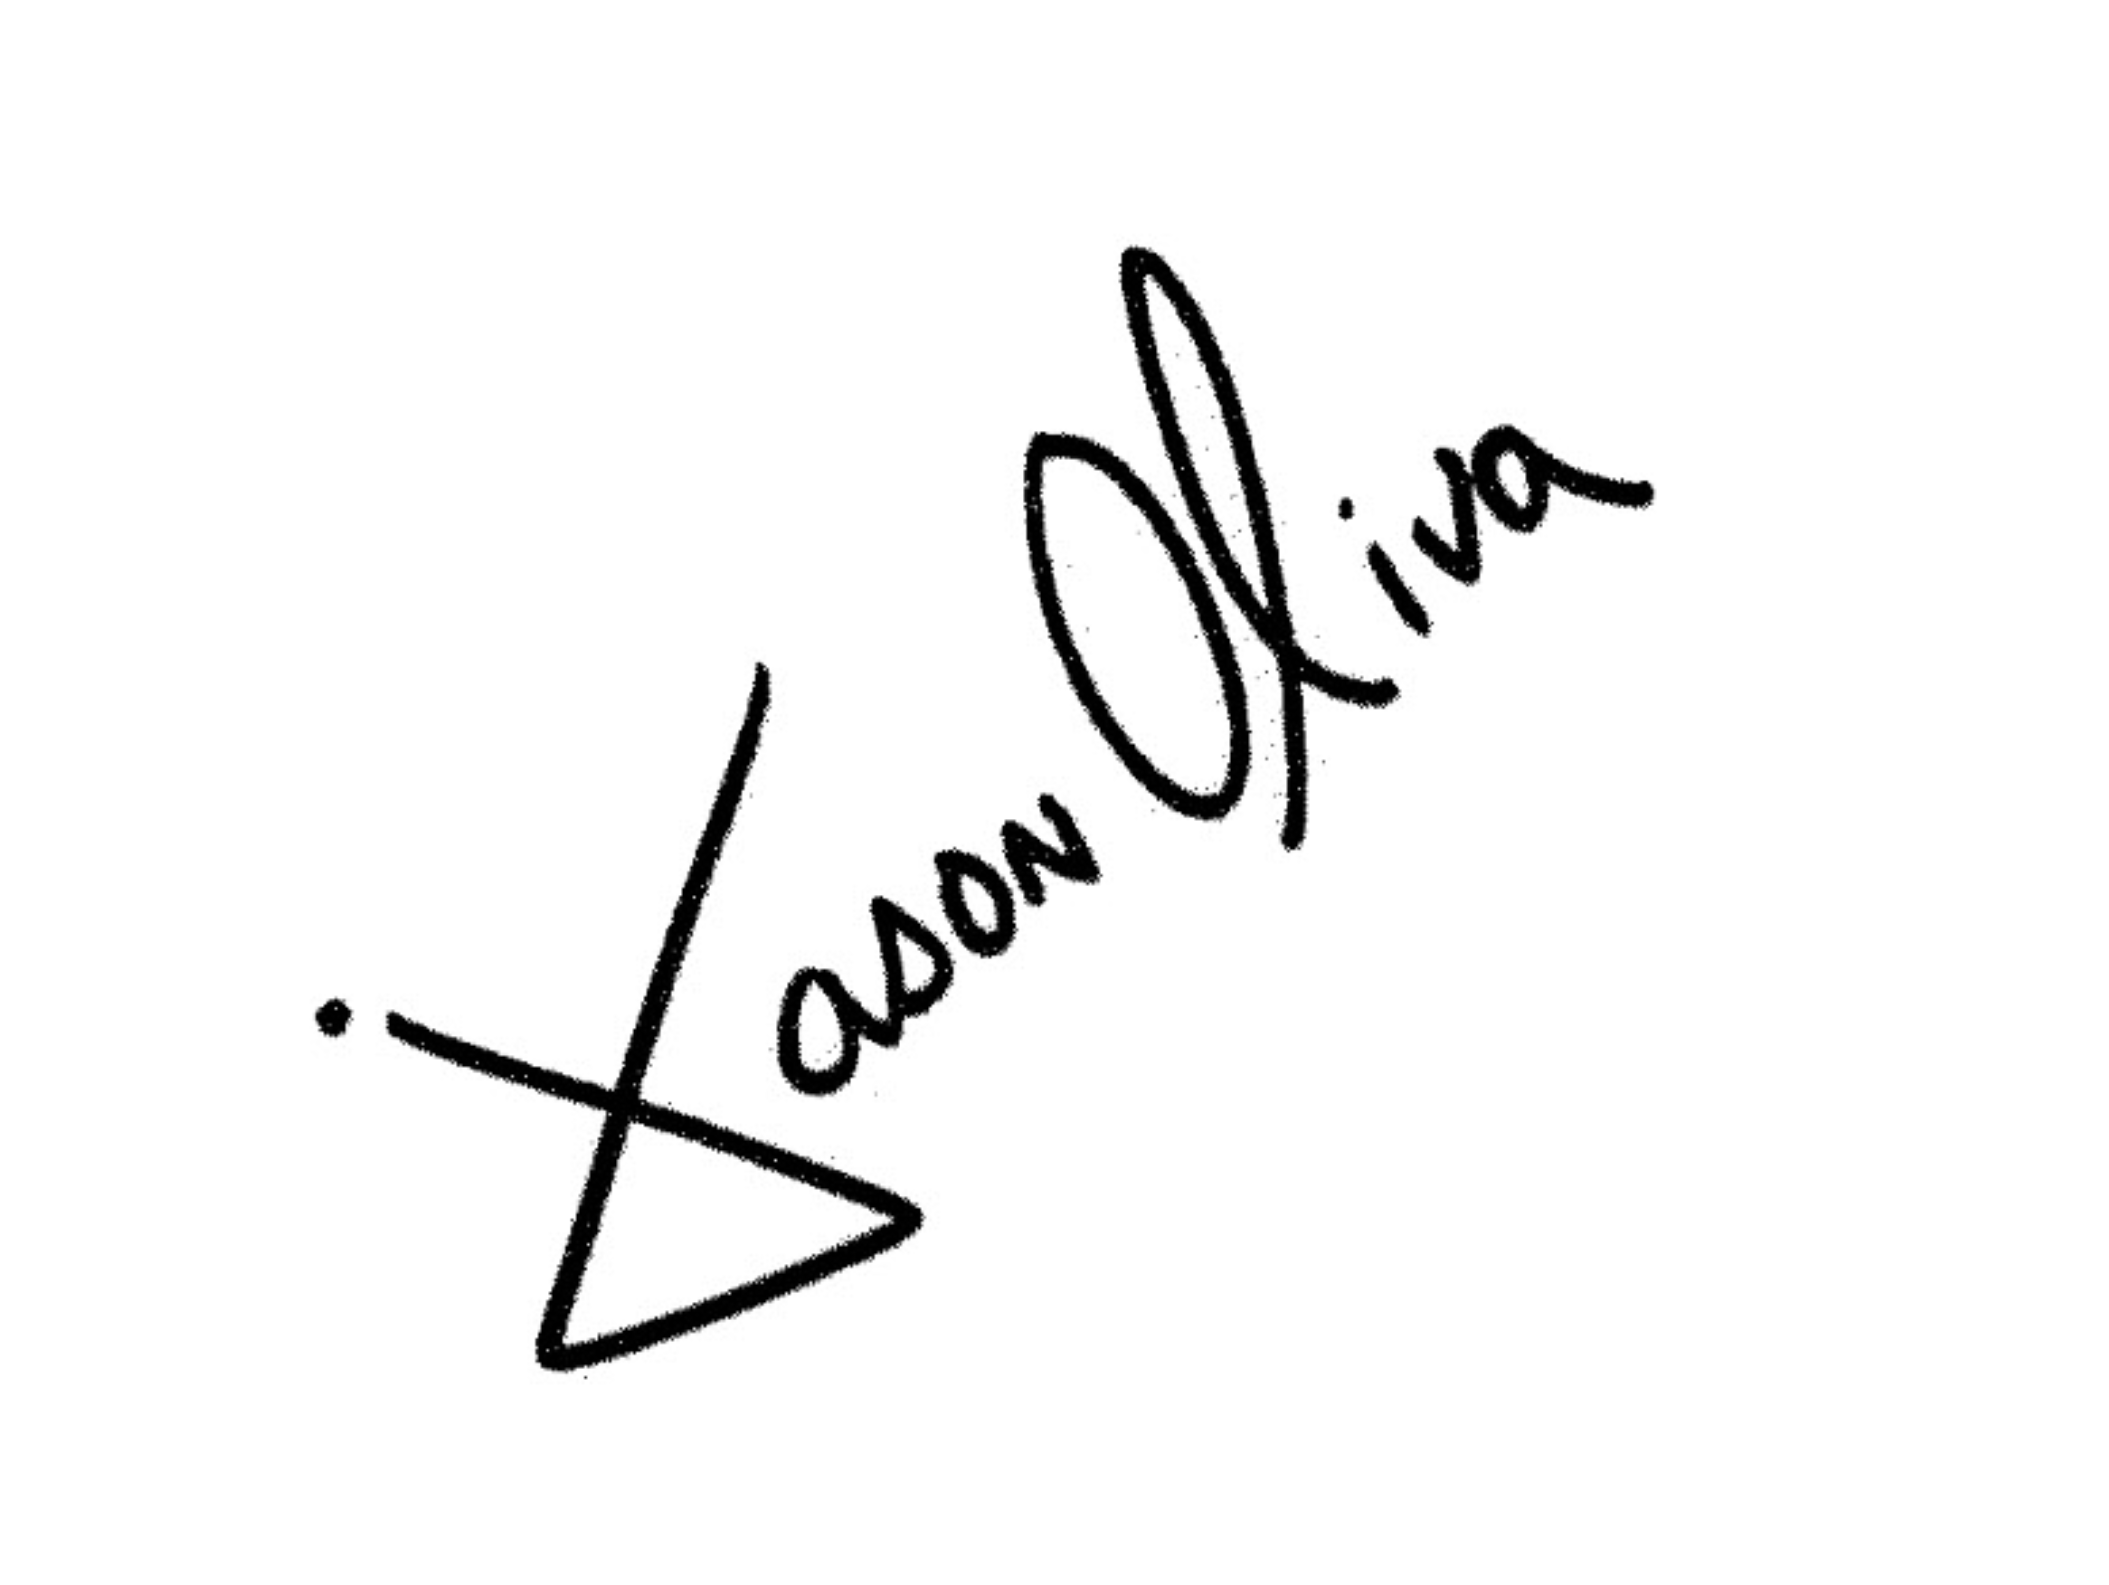 Jason Oliva